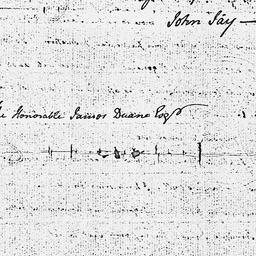 John Jay —
The Honorable James Duane Esqr